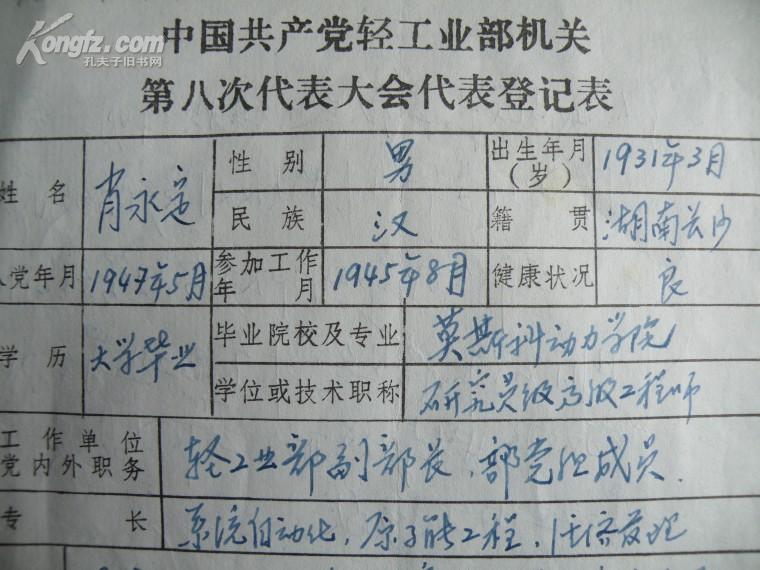 Kongfz.com
孔夫子旧书网
中国共产党轻工业部机关
第八次代表大会代表登记表
姓名 肖永定 性别 男 出生年月（岁） 1931年3月
民族 汉 籍贯 湖南长沙
入党年月 1947年5月 参加工作年月 1945年8月 健康状况 良
学历 大学毕业 毕业院校及专业 莫斯科动力学院
学位或技术职称 研究员级高级工程师
工作单位党内外职务 轻工业部副部长、部党组成员.
专长 系统自动化，原子能工程，经济管理